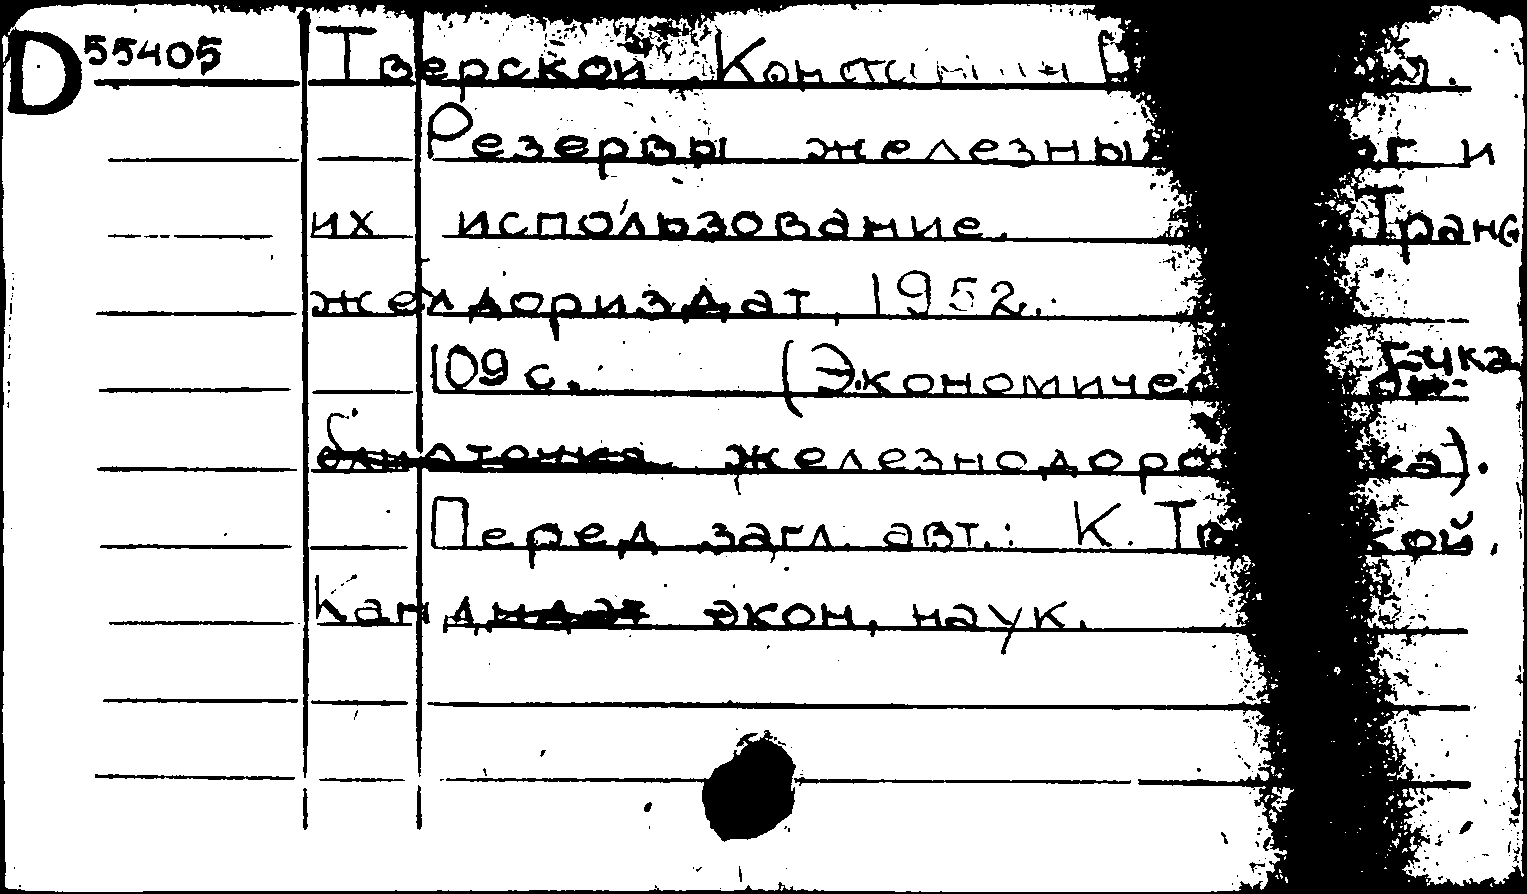 D 55405 Тверской, Константин
Резервы железных и
их использование. Транс
желдориздат, 1952.
109 с. (Экономичес б-чка
железнодорож ка).
Перед загл. авт.: К. Тверской,
Канд. экон. наук.